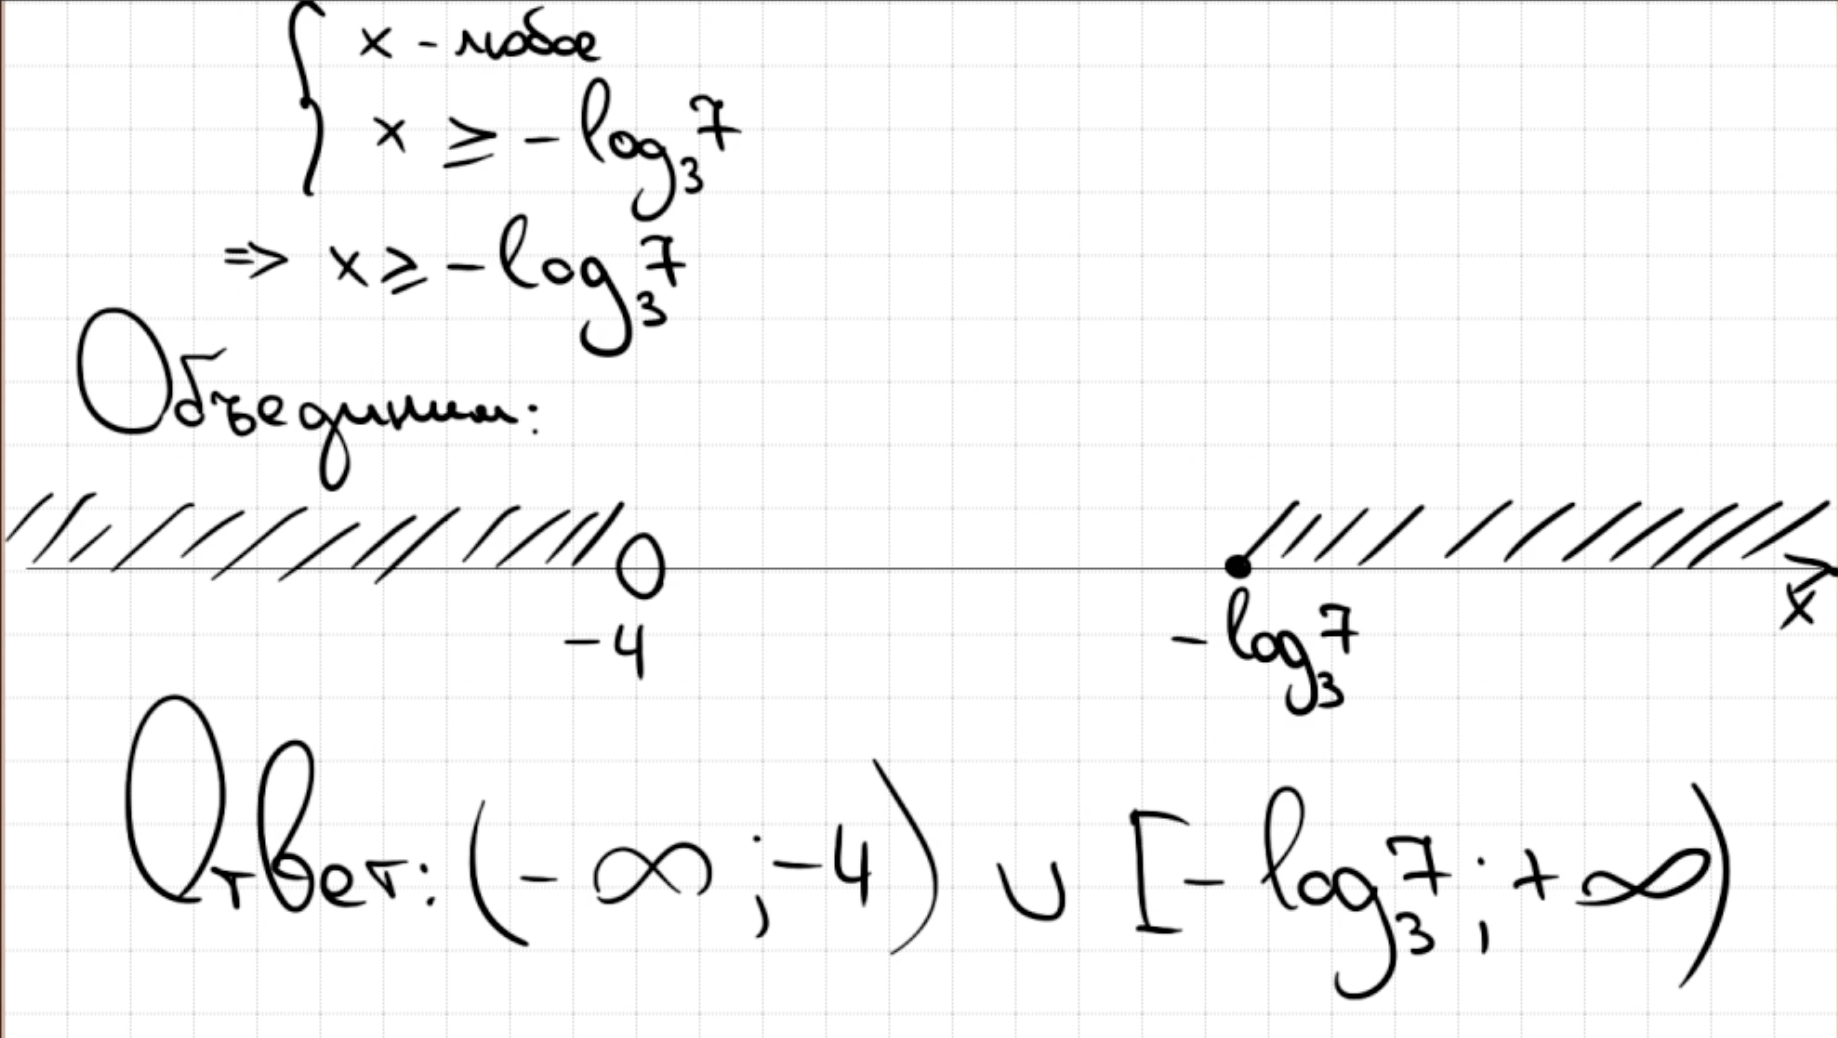 { x - любое
x ≥ - log₃7
=> x ≥ - log₃7
Объединим:
-4 - log₃7 x
Ответ: (- ∞ ; -4) ∪ [- log₃7 ; + ∞)